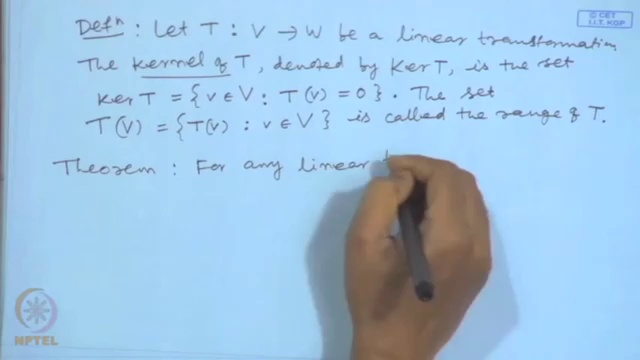 © CET
I.I.T. KGP
Defn : Let T : V → W be a linear transformation.
The kernel of T, denoted by Ker T, is the set
Ker T = {v ∈ V : T(v) = 0}. The set
T(V) = {T(v) : v ∈ V} is called the range of T.
Theorem : For any linear t
NPTEL